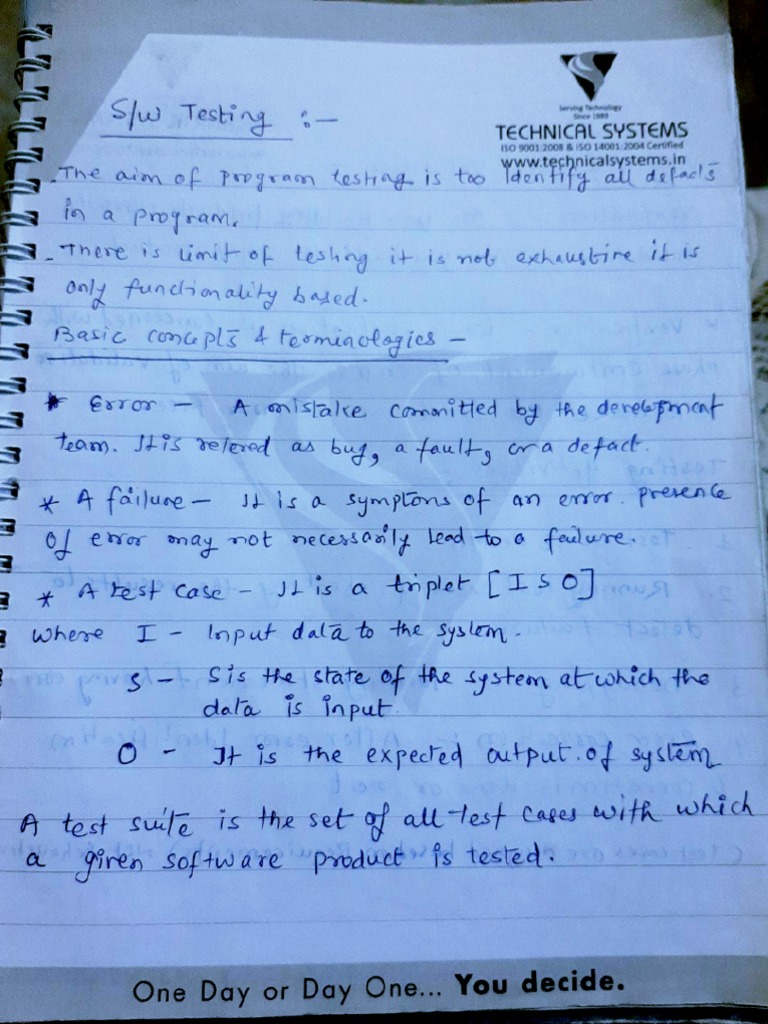 S/W Testing :-
Serving Technology
Since 1989
TECHNICAL SYSTEMS
ISO 9001:2008 & ISO 14001:2004 Certified
www.technicalsystems.in
- The aim of program testing is too Identify all defacts
in a program.
- There is limit of testing it is not exhaustive it is
only functionality based.
Basic concepts & terminologies -
* Error - A mistake committed by the development
team. It is refered as bug, a fault, or a defect.
* A failure - It is a symptons of an error. presence
of error may not necessarily lead to a failure.
* A test case - It is a triplet [I S O]
where I - Input data to the system.
S - S is the state of the system at which the
data is input.
O - It is the expected output of system
A test suite is the set of all test cases with which
a given software product is tested.
One Day or Day One... You decide.